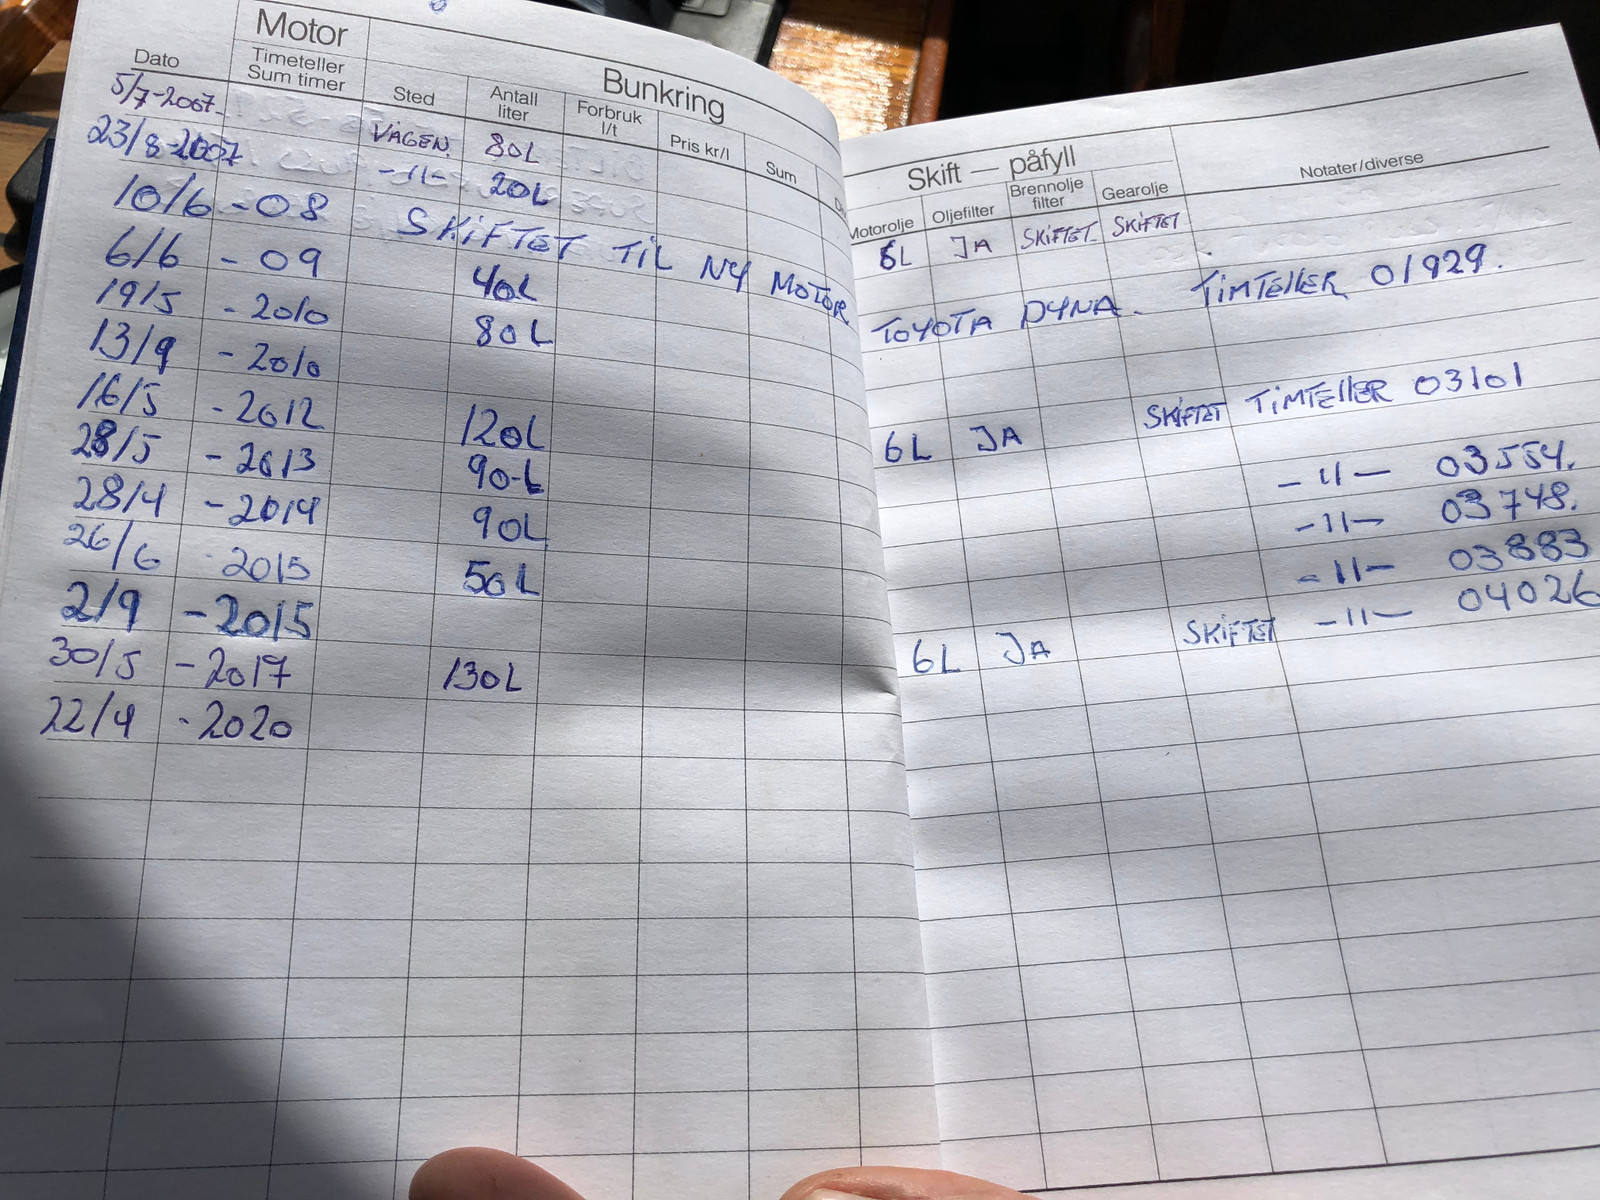 Motor Bunkring
Dato Timeteller Sum timer Sted Antall liter Forbruk l/t Pris kr/l Sum
Skift — påfyll Notater/diverse
Motorolje Oljefilter Brennolje filter Gearolje
5/7-2007. VÅGEN. 80L 6L JA SKIFTET SKIFTET
23/8-2007 -11- 20L
10/6 - 08 SKIFTET TIL NY MOTOR TOYOTA DYNA. TIMTELLER 01929.
6/6 - 09 40L
19/5 - 2010 80L
13/9 - 2010 6L JA SKIFTET TIMTELLER 03101
16/5 - 2012 120L -11- 03554.
28/5 - 2013 90L -11- 03748.
28/4 - 2014 90L -11- 03883
26/6 2015 50L
2/9 - 2015 6L JA SKIFTET -11- 04026
30/5 - 2017 130L
22/4 - 2020